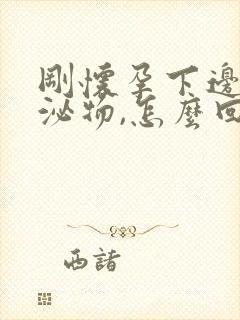 剛懷孕下邊
泌物,怎麼回
西諸